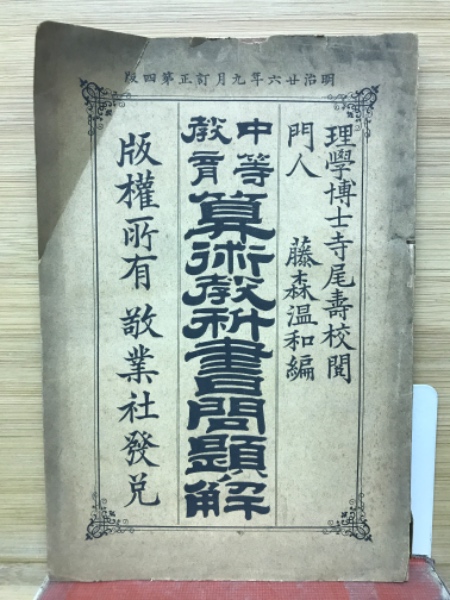 明治廿六年九月訂正第四版
理學博士寺尾壽校閲
門人 藤森温和編
中等教育
算術教科書問題解
版權所有 敬業社發兌